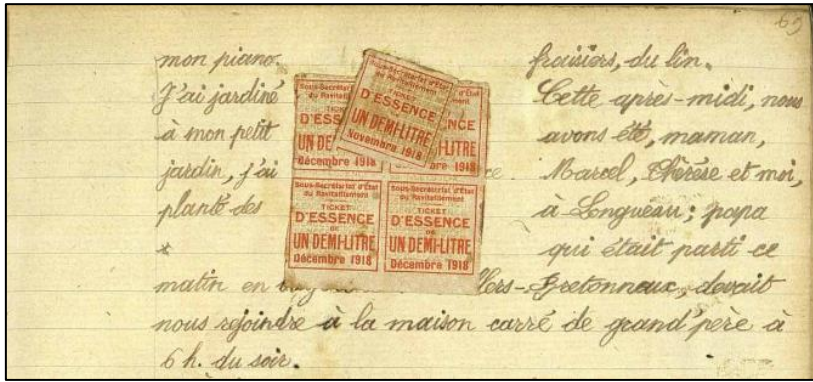 69
mon piano.
J'ai jardiné
à mon petit
jardin, j'ai
planté des
*
fraisiers, du lin.
Cette après-midi, nous
avons été, maman,
Marcel, Thérèse et moi,
à Longueau; papa
qui était parti ce
matin en Vers-Bretonneux, devait
nous rejoindre à la maison carré de grand'père à
6 h. du soir.
Sous-Secrétariat d'État
TICKET
D'ESSENCE
UN DEMI-LITRE
Novembre 1918
Sous-Secrétariat
du Ravitaillement
TICKET
D'ESS
UN DE
Décembre 1918
d'État
ment
NCE
LITRE
bre 1918
Sous-Secrétariat d'État
du Ravitaillement
TICKET
D'ESSENCE
DE
UN DEMI-LITRE
Décembre 1918
Sous-Secrétariat d'État
du Ravitaillement
TICKET
D'ESSENCE
DE
UN DEMI-LITRE
Décembre 1918